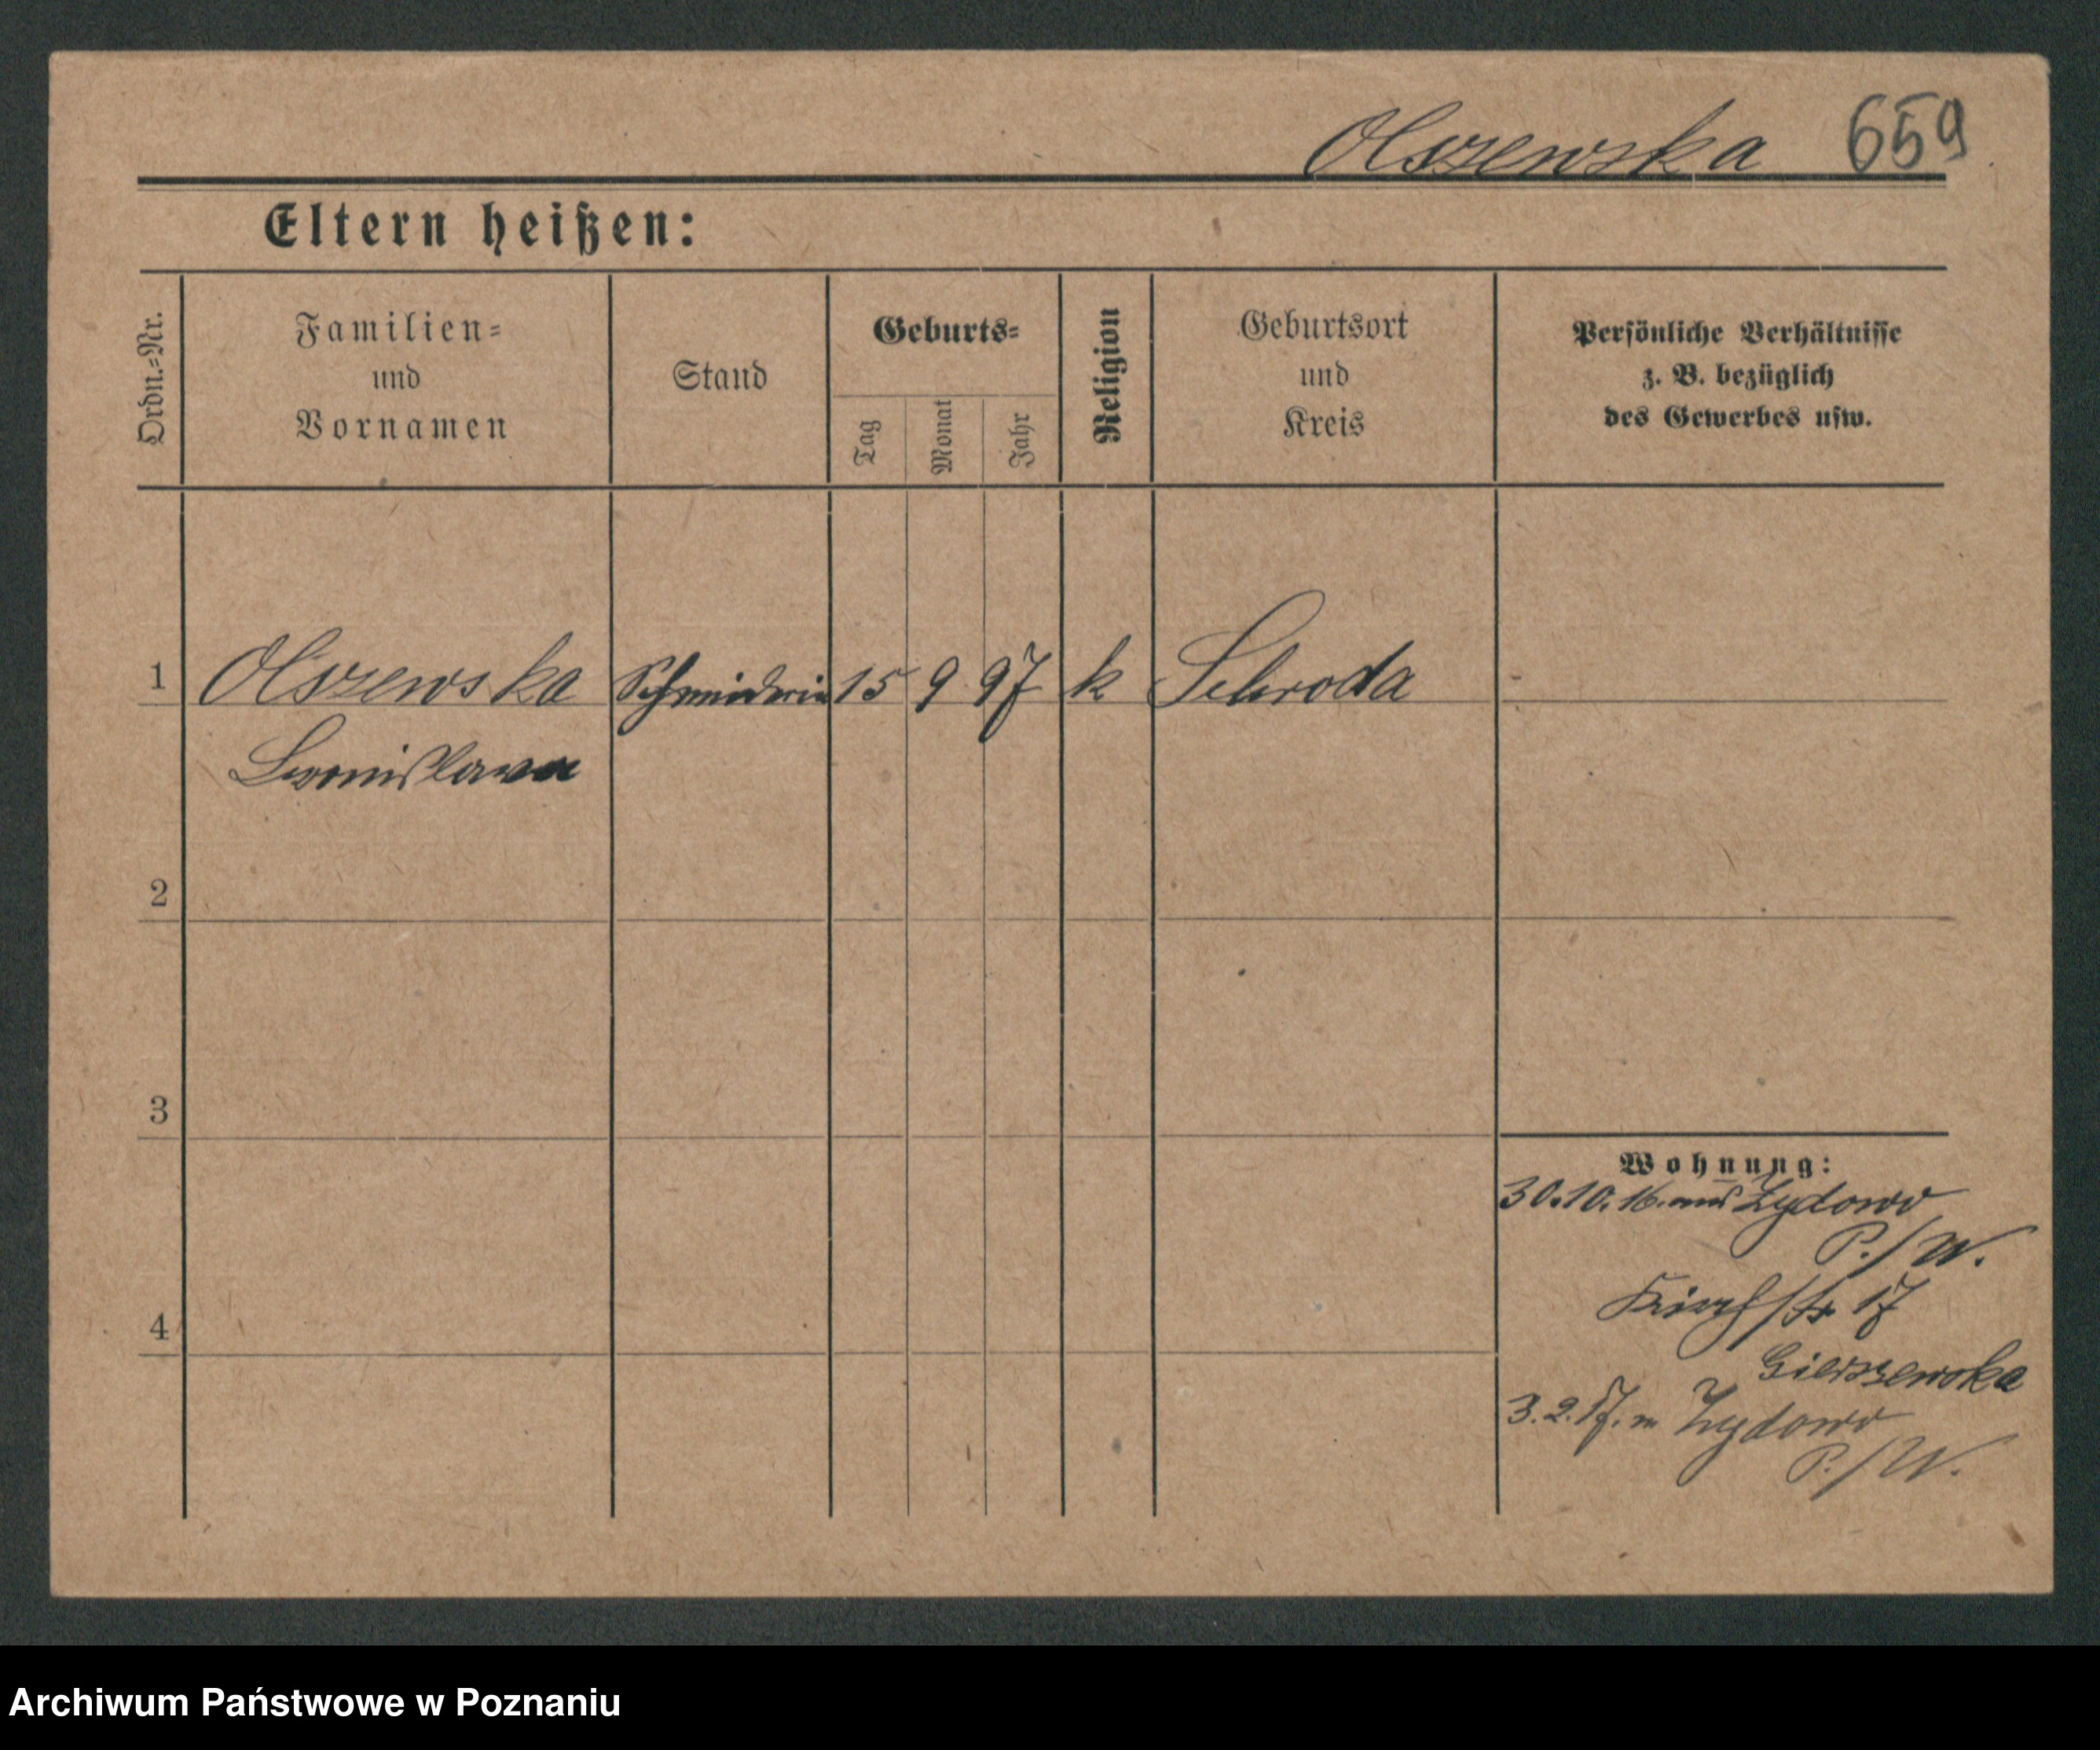 Olszewska 659
Eltern heißen:
Ordn.=Nr.
Familien=
und
Vornamen
Stand
Geburts=
Tag
Monat
Jahr
Religion
Geburtsort
und
Kreis
Persönliche Verhältnisse
z. B. bezüglich
des Gewerbes usw.
1 Olszewska Schneiderin 15 9 97 k Schroda
2
3
4
Wohnung:
30.10.16. aus Zydowo
P./W.
Kirchstr 17
3.2.17. n Zydowo
P./W.
Archiwum Państwowe w Poznaniu